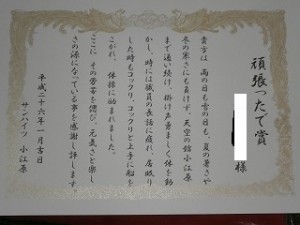 頑張ったで賞
様
貴方は 雨の日も雪の日も、夏の暑さや
冬の寒さにも負けず、天空の館小江原
まで通い続け、掛け声勇ましく体を動
かし、時には職員の長話に疲れ、居眠り
した時もコックリ、コックリと上手に船を
こがれ、 体操に励まれました。
ここに その労苦を偲び、元気さと楽し
さの源になっている事を感謝し評します。
平成二十六年一月吉日
サンハイツ小江原